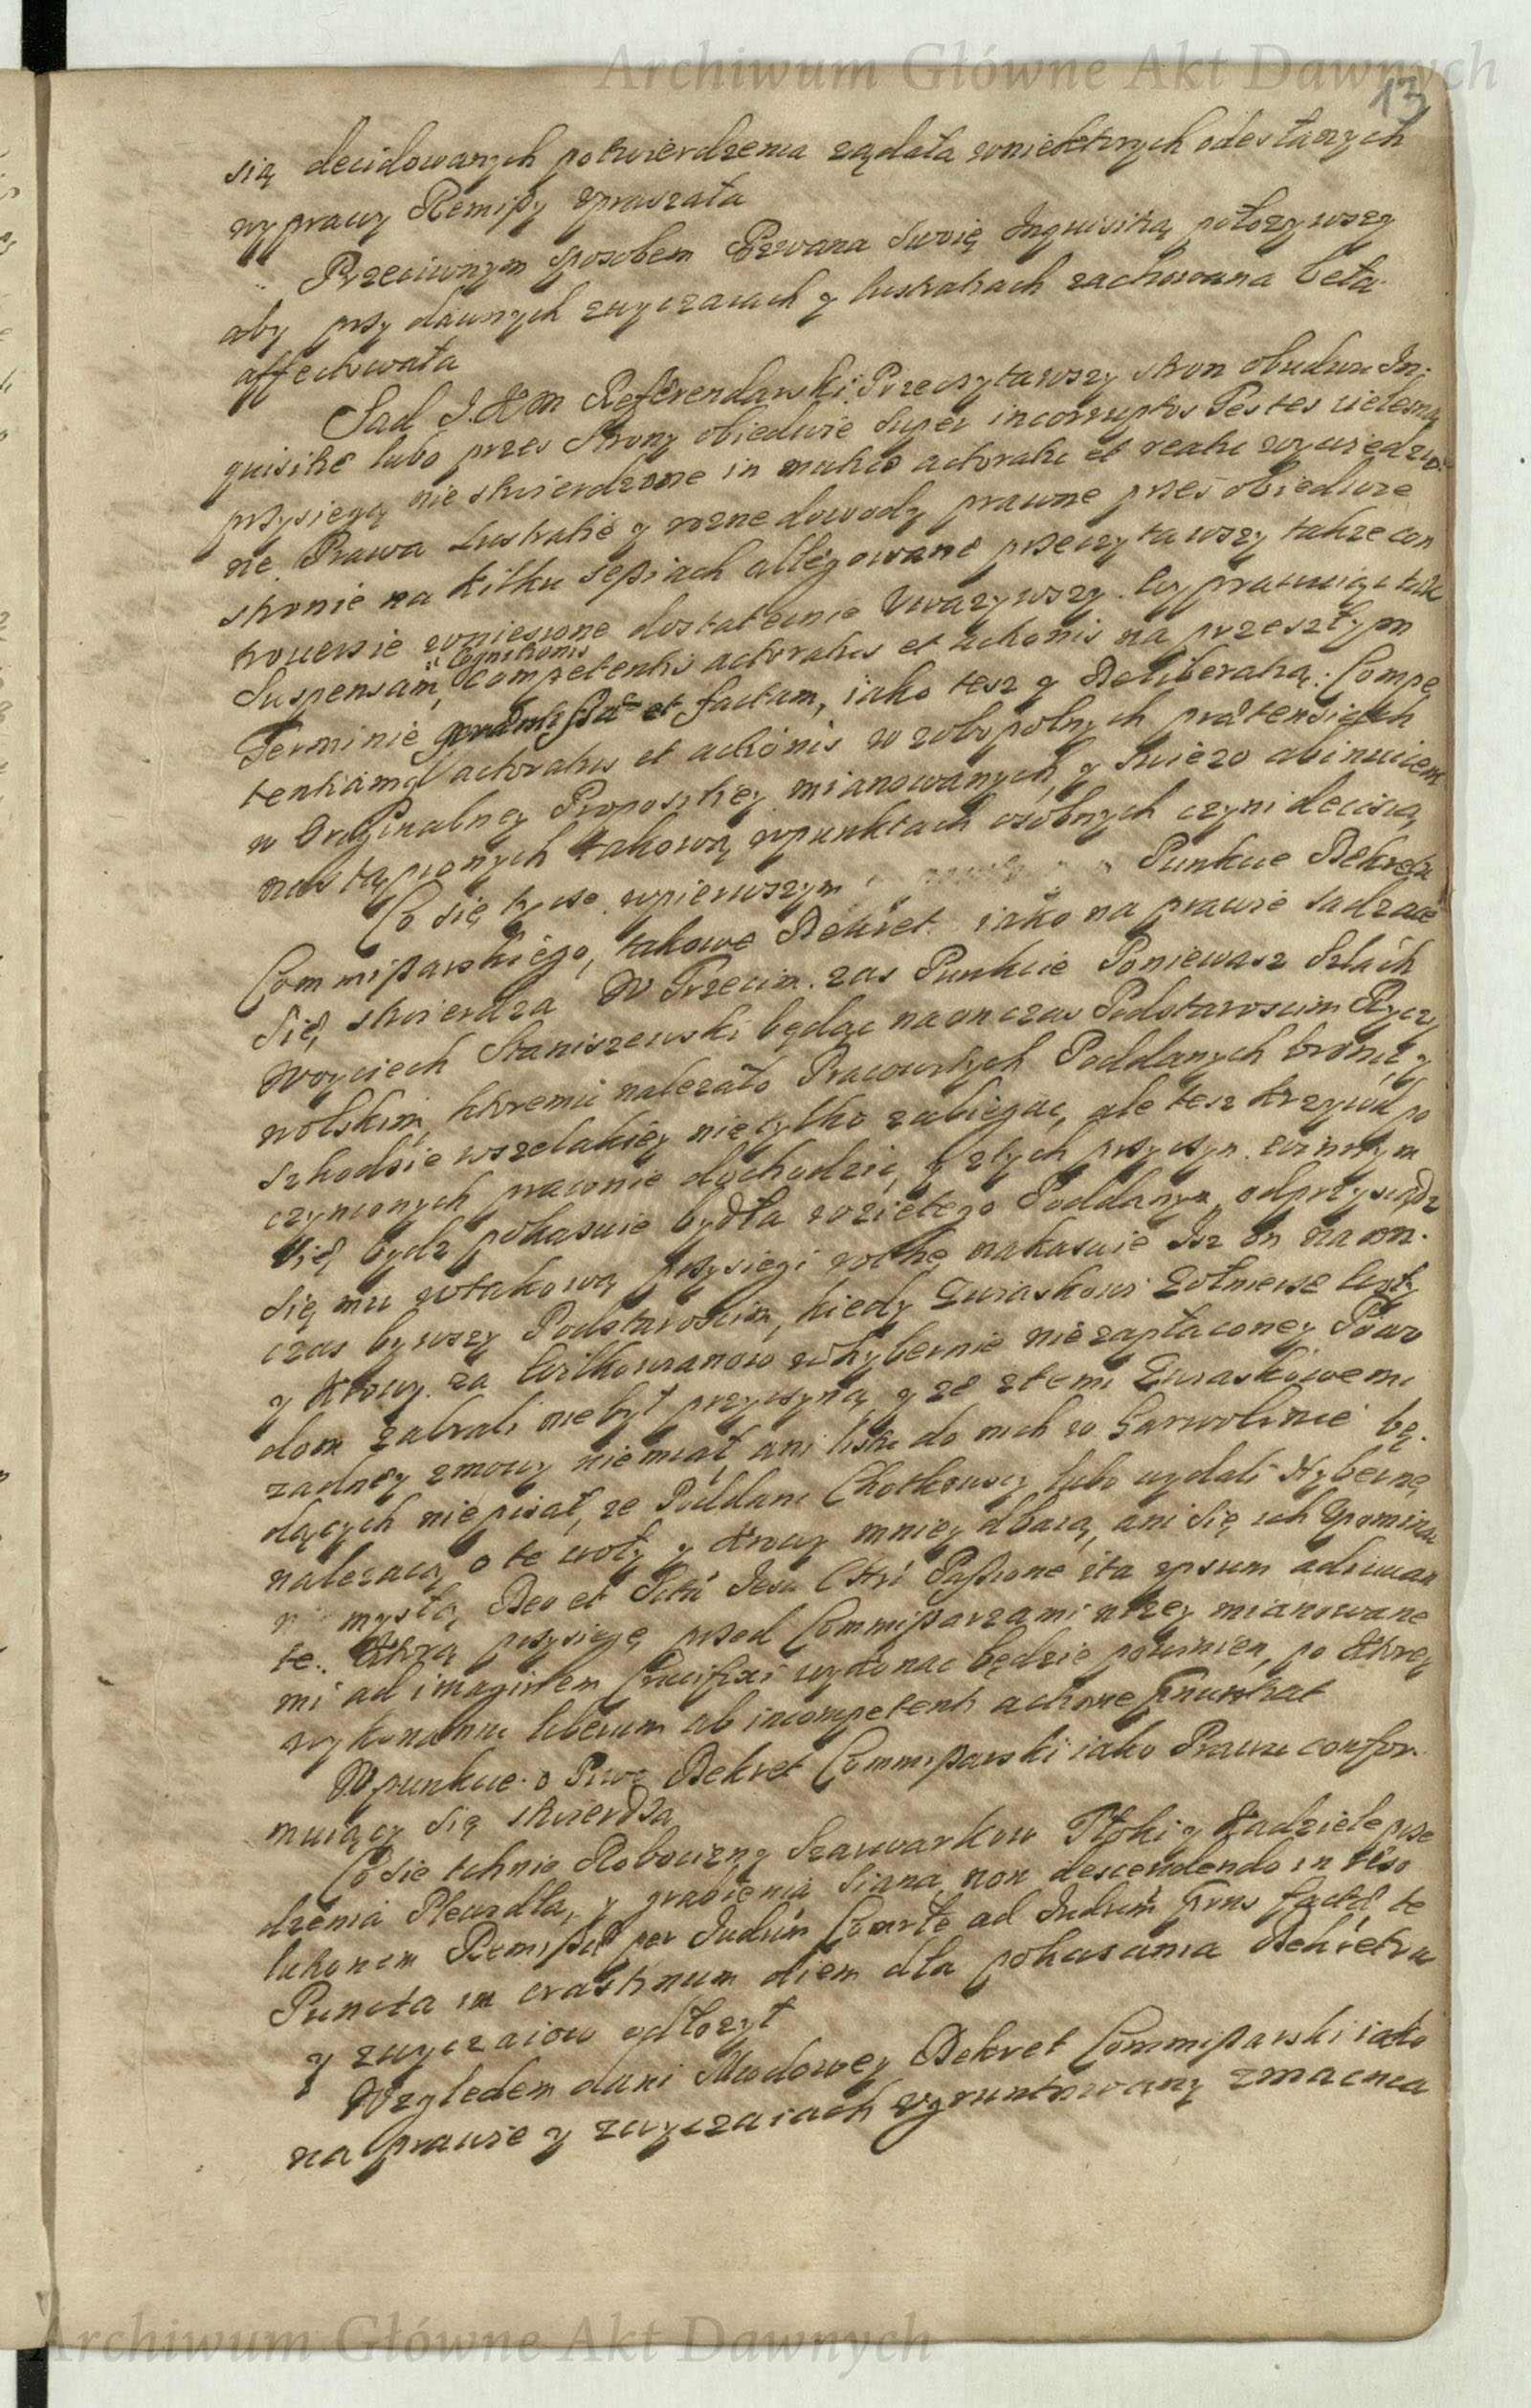 Archiwum Główne Akt Dawnych
13
się decidowanych potwierdzenia żądała wniektorych odesłanych
wyprawy Remissy upraszała
Przeciwnym sposobem Pozwana swoię Inquisitią położywszy
aby przy dawnych zwyczaiach y lustratiach zachowana beła
affectowała
Sad J.K.M Referendarski Przeczytawszy stron obudwu In-
quisitie lubo przez Strony obiedwie super incorruptos Testes cielesną
przysięgą nie stwierdzone in multis actoratu et reatu wywiedzio-
ne. Prawa Lustratie y rozne dowody prawne przes obiedwie
stronie na kilku sessiach allegowane przeczytawszy takze con
trouersie wniesione dostatecnie Vwazywszy. wyprawuiąc tak
Suspensam Cognitionis competentis actoratus et actionis na przeszłym
Terminie et factam, iako tesz y Deliberatią: Compe
tentiam actoratus et actionis w zobopolnych praetensiach
w Originalney Propositiey mianowanych, y swiezo ab inuicem
nastąpionych takową wpunktach osobnych czyni decisią
Co się tycze wpierwszym Punkcie Dekretu
Commissarskiego, takowe Dekret iako na prawie sadzace
Się, stwierdza W Trzecim zas Punkcie Poniewasz Szlach
Woyciech Staniszewski będąc naonczas Podstaroscim Ryczy
wolskim, ktoremu nalezało Pracowitych Poddanych bronić y
szkodzie wszelakiey nie tylko zabiegac, ale tesz krzywd po
czynionych prawnie dochodzic, y z tych przyczyn winnym
Się bydz pokasuie bydła wzietego Poddanym, odprzysiądz
Się mu wtakową przysiegi rothę nakasuie Isz on na on-
czas bywszy Podstaroscim, kiedy Zuraskowi Zołnierze woły
y Krowy za Wilkowianow w hybernie niezapłaconey Powo
dom zabrali niebył przyczyną y ze ztemi Zuraskowemi
zadney zmowy niemiał, ani listu do nich w Garwolinie bę-
dących niepisał, ze Poddani Chotkowscy lubo wydali Hybernę
nalezącą o te woły y Krowy mniey dbaią, ani się ich Vpominac
myslą, Deo et Scta Iesu Chri Passione ita ipsum adiuuan
te. Ktorą przysięgę przed Commissarzami nizey mianowane
mi ad imaginem Crucifixi wykonac będzie powinien, po ktorey
wykonaniu liberum ab incompetenti actione pnuntiat
W punkcie o Piwo Dekret Commissarski iako Prawu confor-
muiący się stwierdza
Co sie tchnie Robocizny Szarwarkow Tłoki y Kadziele prze
dzenia Plewidła, y grabienia Siana non descendendo in reso
lutionem Remissae per Iudium Commrle ad Iudium pnns factae te
Puncta in crastinum diem dla pokasania Dekretu
y zwyczaiow odłozył
Wzgledem dani Miodowey Dekret Commissarski iako
na prawie y zwyczaiach vgruntowany zmacnia
Archiwum Główne Akt Dawnych